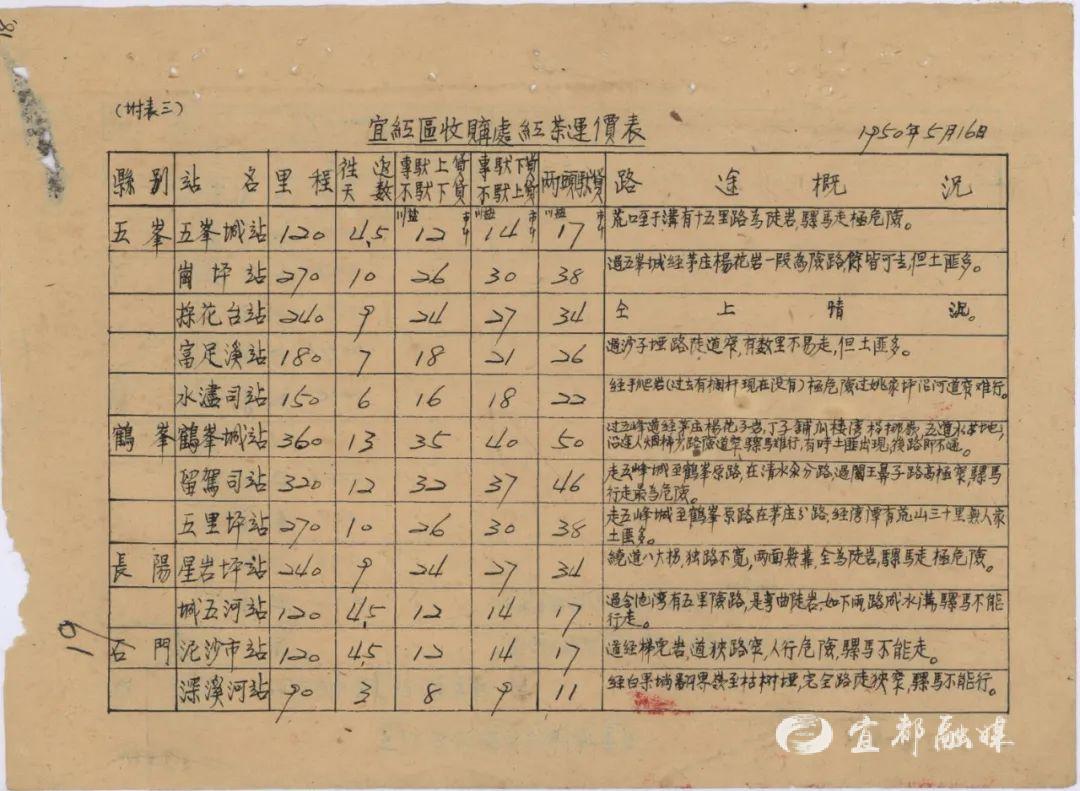 (附表三)
宜紅區收購處紅茶運價表
1950年5月16日
縣別 站名 里程 往返天數 專馱上貨不馱下貨 專馱下貨不馱上貨 兩頭馱貨 路途概況
五峯 五峯城站 120 4.5 川鹽 12 市斤 川鹽 14 市斤 川鹽 17 市斤 荒口至于溝有十五里路為陡岩,騾馬走極危險。
崗坪站 270 10 26 30 38 過五峯城經茅庄楊花岩一段為險路,餘皆可走,但土匪多。
採花台站 240 9 24 27 34 仝上情況。
富足溪站 180 7 18 21 26 過沙子埡路陡道窄,有数里不易走,但土匪多。
水濜司站 150 6 16 18 22 經手爬岩(过去有栏杆现在没有)極危險过姚家坪沿河道窄难行。
鶴峯 鶴峯城站 360 13 35 40 50 过五峰道經茅庄楊花 五道水 沿途人烟稀少,路險道窄,騾馬难行,有時土匪出現,後路即不通。
留駕司站 320 12 32 37 46 走五峰城至鶴峯原路,在清水泉分路,過閻王鼻子路高極窄,騾馬行走最為危險。
五里坪站 270 10 26 30 38 走五峰城至鶴峯原路在茅庄分路,經湾潭有荒山三十里無人家土匪多。
長陽 星岩坪站 240 9 24 27 34 繞道八大拐,独路不寬,两面 全為陡岩,騾馬走極危險。
城五河站 120 4.5 12 14 17 過金池湾有五里險路,是弯曲陡岩,如下雨路成水溝,騾馬不能行走。
石門 泥沙市站 120 4.5 12 14 17 道經梯兒岩,道狹路窄,人行危險,騾馬不能走。
深溪河站 90 3 8 9 11 經白果埫 至枯树埡,完全路陡狹窄,騾馬不能行。
19
宜都融媒